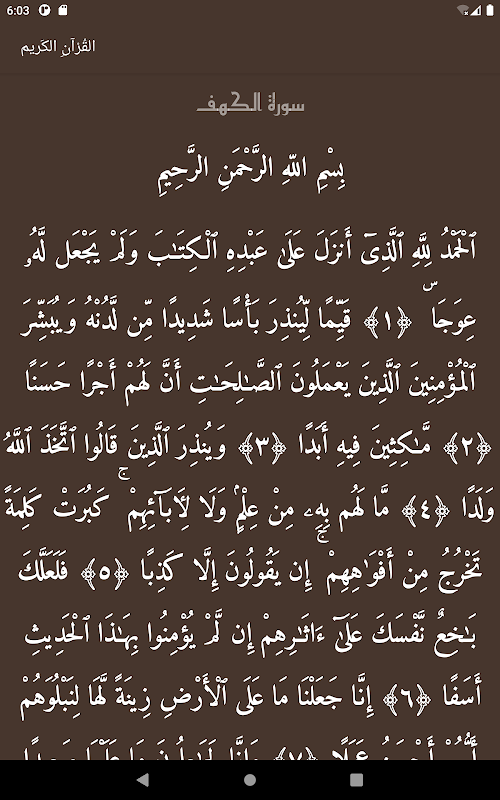 6:03
القُرْآنِ الكَرِيم
سورة الكهف
بِسْمِ اللَّهِ الرَّحْمَنِ الرَّحِيمِ
ٱلْحَمْدُ لِلَّهِ ٱلَّذِىٓ أَنزَلَ عَلَىٰ عَبْدِهِ ٱلْكِتَـٰبَ وَلَمْ يَجْعَل لَّهُۥ
عِوَجَا ۜ ﴿١﴾ قَيِّمًا لِّيُنذِرَ بَأْسًا شَدِيدًا مِّن لَّدُنْهُ وَيُبَشِّرَ
ٱلْمُؤْمِنِينَ ٱلَّذِينَ يَعْمَلُونَ ٱلصَّـٰلِحَـٰتِ أَنَّ لَهُمْ أَجْرًا حَسَنًا
﴿٢﴾ مَّـٰكِثِينَ فِيهِ أَبَدًا ﴿٣﴾ وَيُنذِرَ ٱلَّذِينَ قَالُوا ٱتَّخَذَ ٱللَّهُ
وَلَدًا ﴿٤﴾ مَّا لَهُم بِهِۦ مِنْ عِلْمٍ وَلَا لِأَبَآئِهِمْ ۚ كَبُرَتْ كَلِمَةً
تَخْرُجُ مِنْ أَفْوَٰهِهِمْ ۚ إِن يَقُولُونَ إِلَّا كَذِبًا ﴿٥﴾ فَلَعَلَّكَ
بَـٰخِعٌ نَّفْسَكَ عَلَىٰٓ ءَاثَـٰرِهِمْ إِن لَّمْ يُؤْمِنُوا بِهَـٰذَا ٱلْحَدِيثِ
أَسَفًا ﴿٦﴾ إِنَّا جَعَلْنَا مَا عَلَى ٱلْأَرْضِ زِينَةً لَّهَا لِنَبْلُوَهُمْ